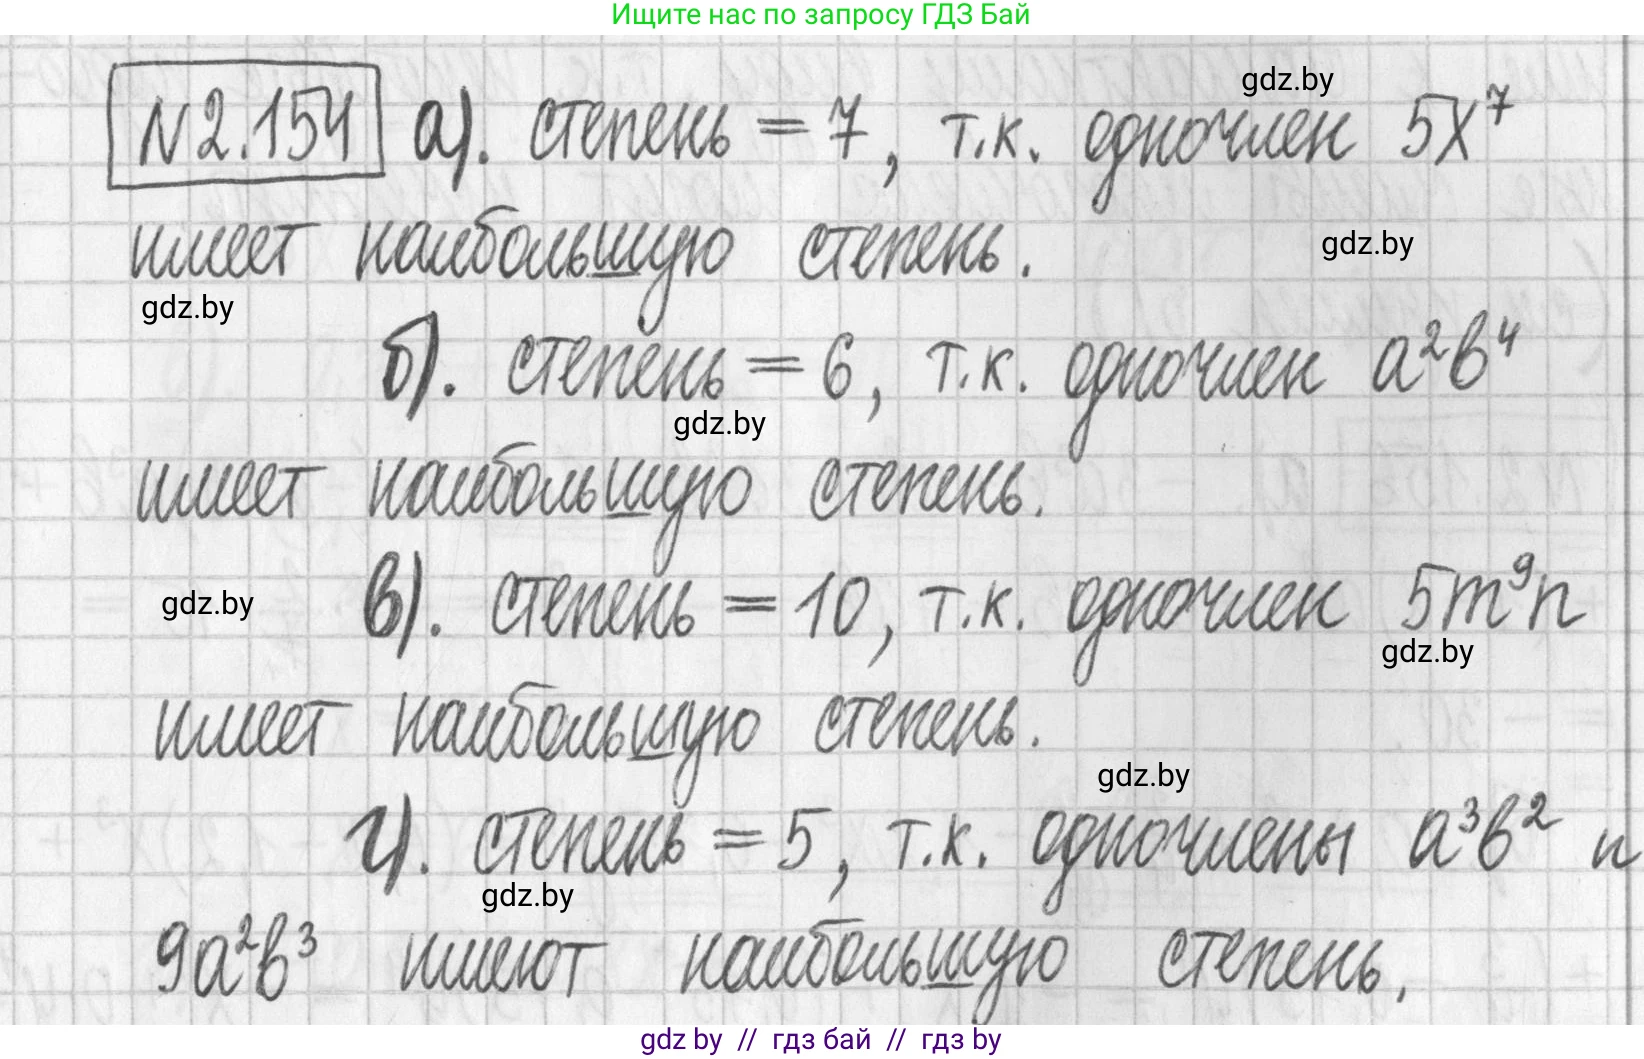 Ищите нас по запросу ГДЗ Бай
gdz.by
№2.154 а). степень = 7, т.к. одночлен 5x⁷
имеет наибольшую степень.
gdz.by
gdz.by
б). степень = 6, т.к. одночлен a²b⁴
gdz.by
имеет наибольшую степень.
gdz.by
в). степень = 10, т.к. одночлен 5m⁹n
gdz.by
имеет наибольшую степень.
gdz.by
г). степень = 5, т.к. одночлены a³b² и
gdz.by
9a²b³ имеют наибольшую степень.
gdz by // гдз бай // гдз by